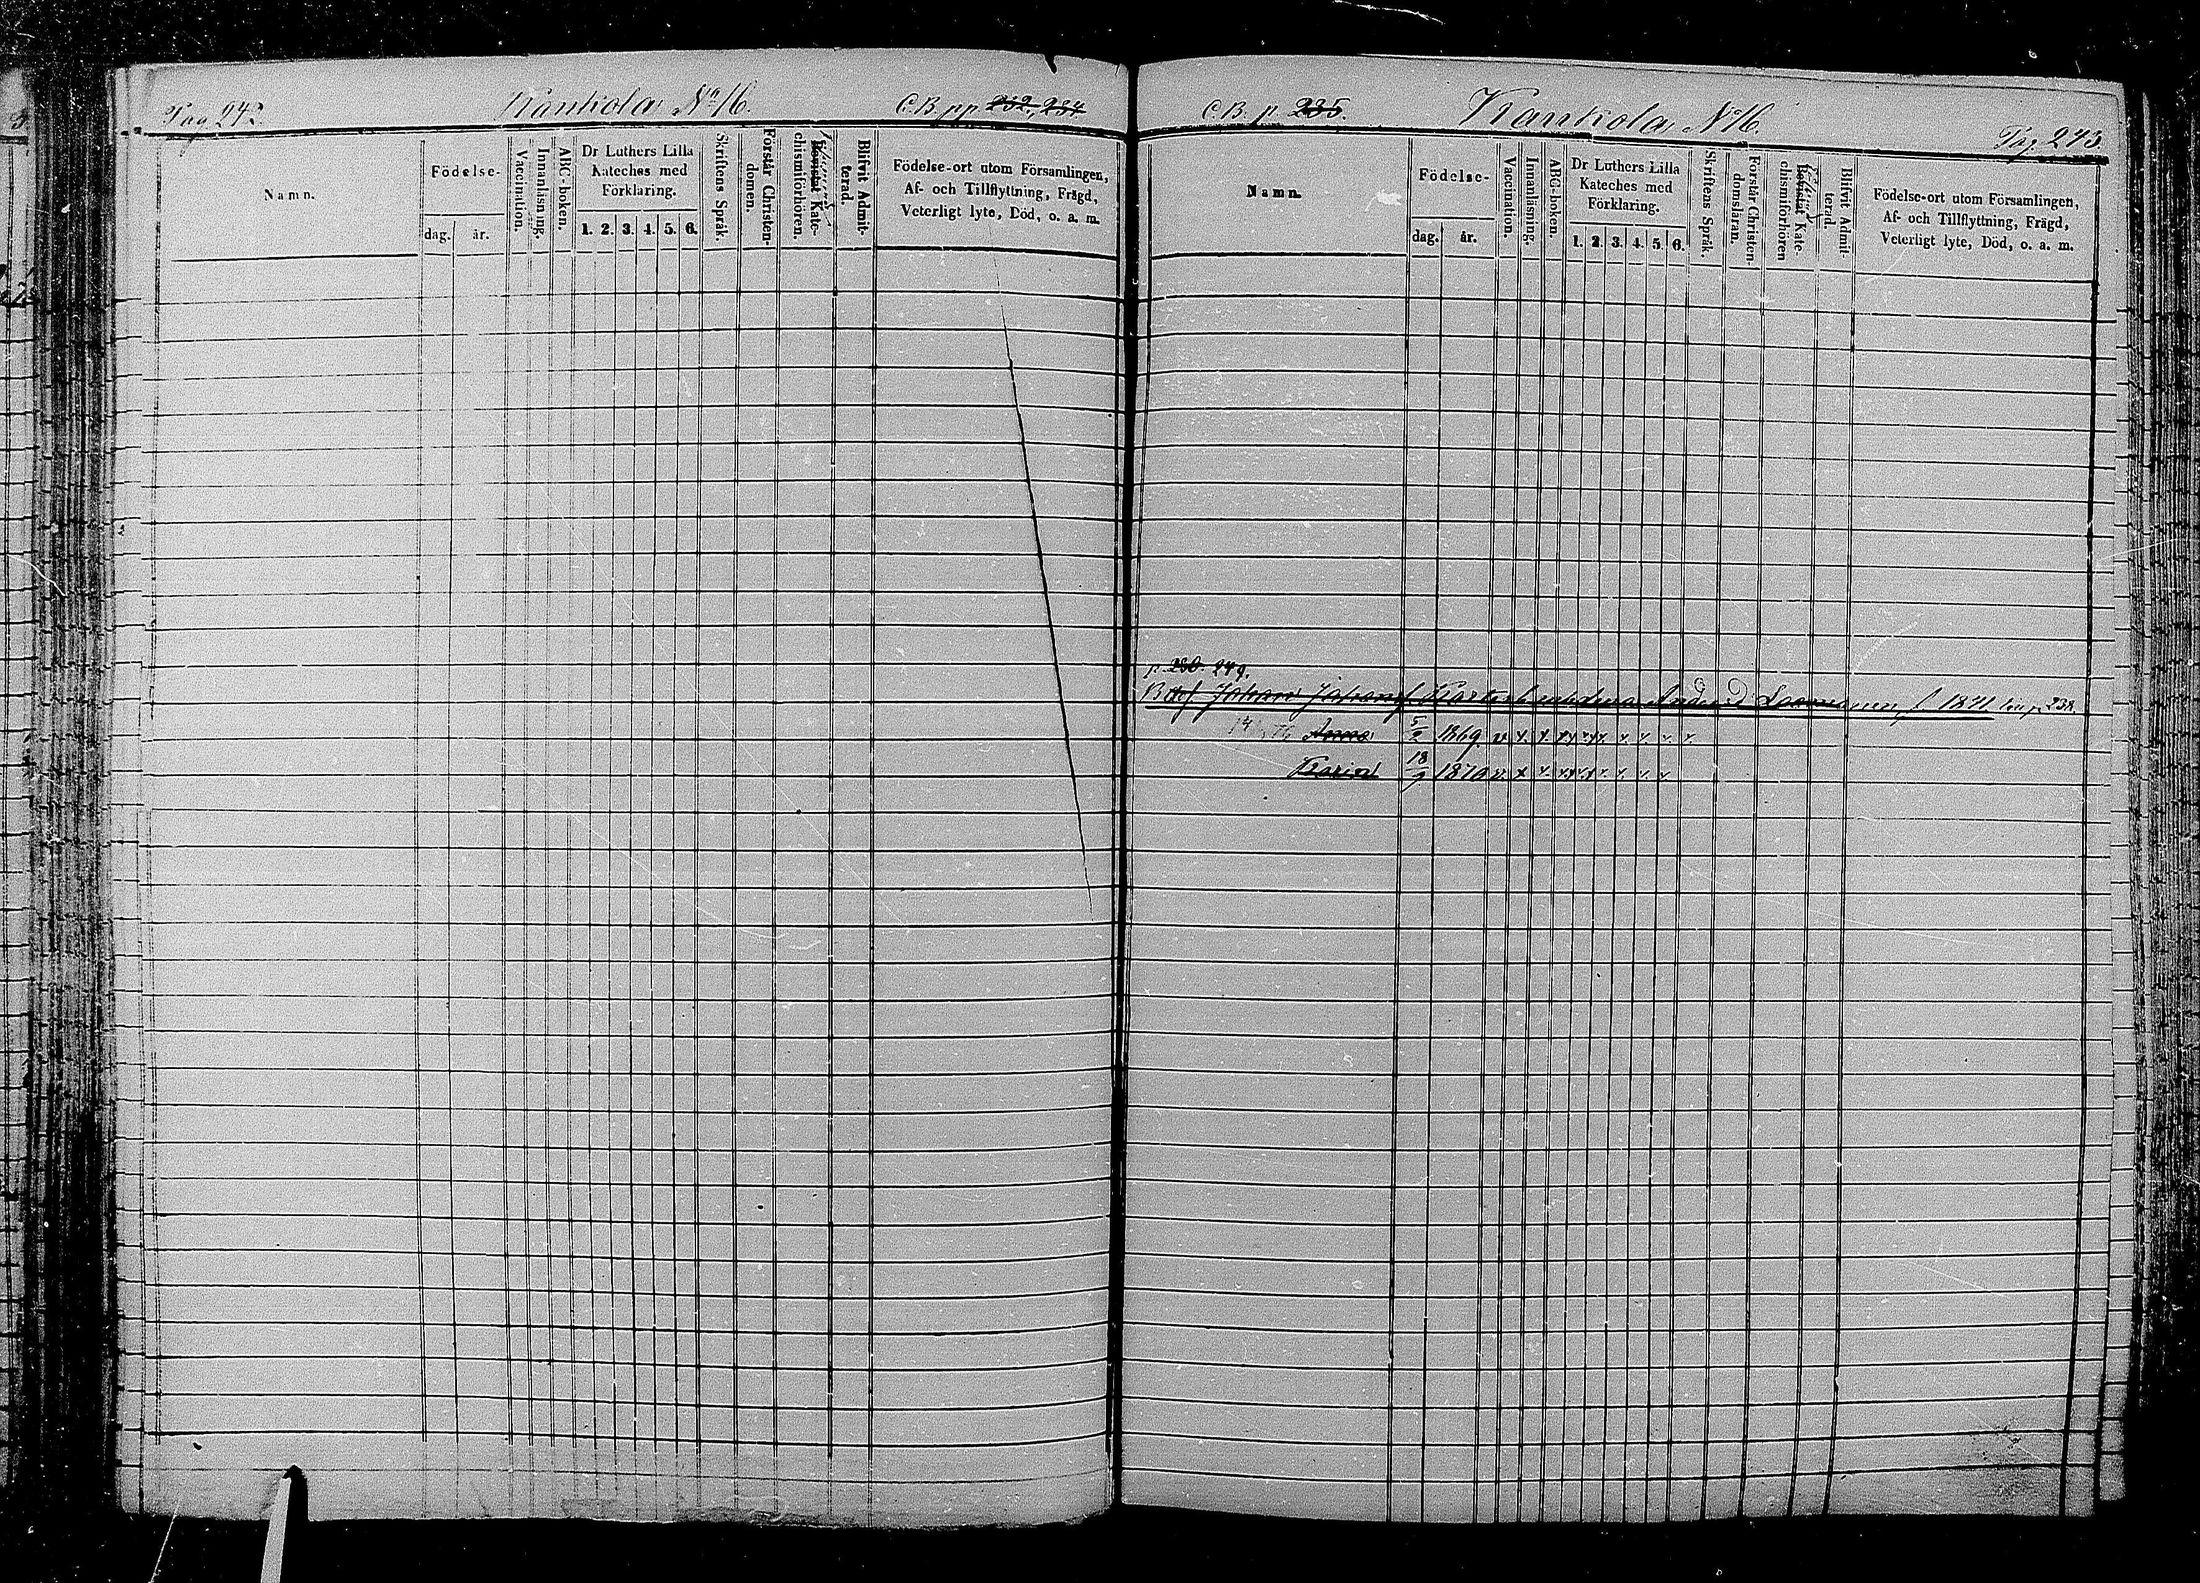 Pag 242
Kankola No 16.
C.B. pp 232, 234
Namn.
Födelse-
dag.
år.
Vaccination.
Innanläsning.
ABC-boken.
Dr Luthers Lilla
Kateches med
Förklaring.
1. 2. 3. 4. 5. 6.
Skriftens Språk.
Förstår Christen-
domen.
Kate-
chismiförhören.
Blifvit Admit-
terad.
Födelse-ort utom Församlingen,
Af- och Tillflyttning, Frägd,
Veterligt lyte, Död, o. a. m.
C.B. p. 235.
Kankola No 16.
Pag. 243.
Namn.
Födelse-
dag.
år.
Vaccination.
Innanläsning.
ABC-boken.
Dr Luthers Lilla
Kateches med
Förklaring.
1. 2. 3. 4. 5. 6.
Skriftens Språk.
Förstår Christen-
domsläran.
Bevistat Kate-
chismiförhören
Blifvit Admit-
terad.
Födelse-ort utom Församlingen,
Af- och Tillflyttning, Frägd,
Veterligt lyte, Död, o. a. m.
p. 249.
Johan 1871 p. 238
Anna 1869. v. x. x.
Karin 18/9 1870 v. x x.